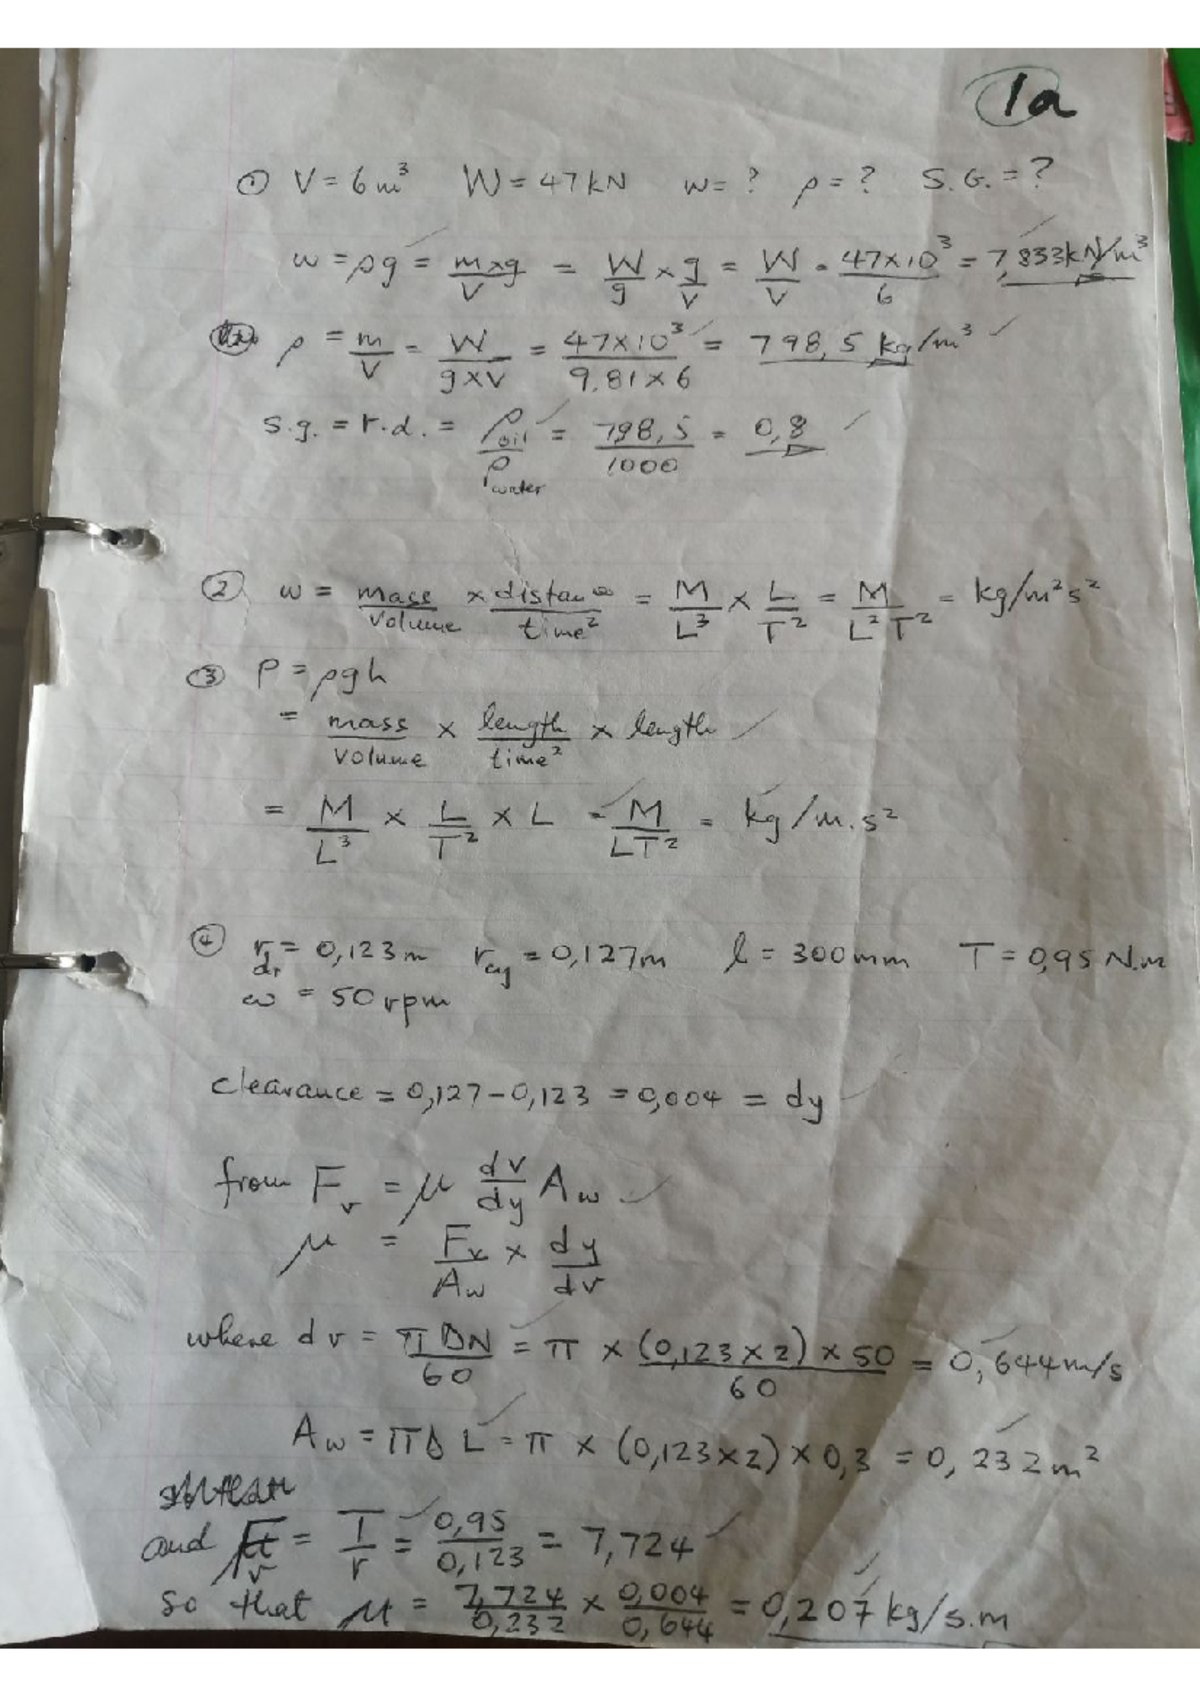 1a
① V = 6m³ W = 47kN w = ? ρ = ? S.G. = ?
w = ρg = m×g/V = W/g × g/V = W/V = 47×10³/6 = 7,833kN/m³
ρ = m/V = W/g×V = 47×10³/9,81×6 = 798,5 kg/m³
s.g. = r.d. = ρoil/ρwater = 798,5/1000 = 0,8
② w = mass/volume × distance/time² = M/L³ × L/T² = M/L²T² = kg/m²s²
③ P = ρgh
= mass/volume × length/time² × length
= M/L³ × L/T² × L = M/LT² = kg/m.s²
④ rdr = 0,123m rcy = 0,127m l = 300mm T = 0,95 N.m
ω = 50rpm
clearance = 0,127-0,123 = 0,004 = dy
from Fv = μ dv/dy Aw
μ = Fv/Aw × dy/dv
where dv = πDN/60 = π × (0,123×2)×50/60 = 0,644m/s
Aw = πDL = π × (0,123×2)×0,3 = 0,232m²
and Fv = T/r = 0,95/0,123 = 7,724
so that μ = 7,724/0,232 × 0,004/0,644 = 0,207kg/s.m